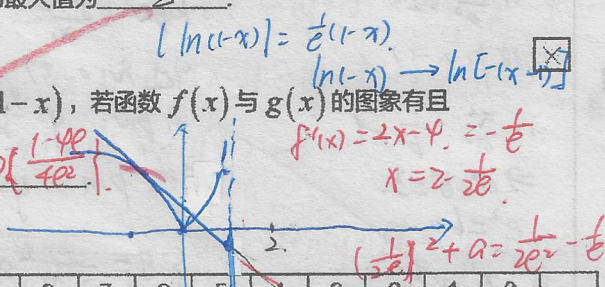 最大值为 2 .
|ln(1-x)| = \frac{1}{e}(1-x).
ln(1-x) → ln[-(x-1)]
1-x), 若函数 f(x) 与 g(x) 的图象有且
f'(x) = 2x-4. = -\frac{1}{e}
\frac{1-4e}{4e^2} }.
x = 2-\frac{1}{2e}.
2.
(\frac{1}{2e})^2 + a = \frac{1}{2e^2} - \frac{1}{e}